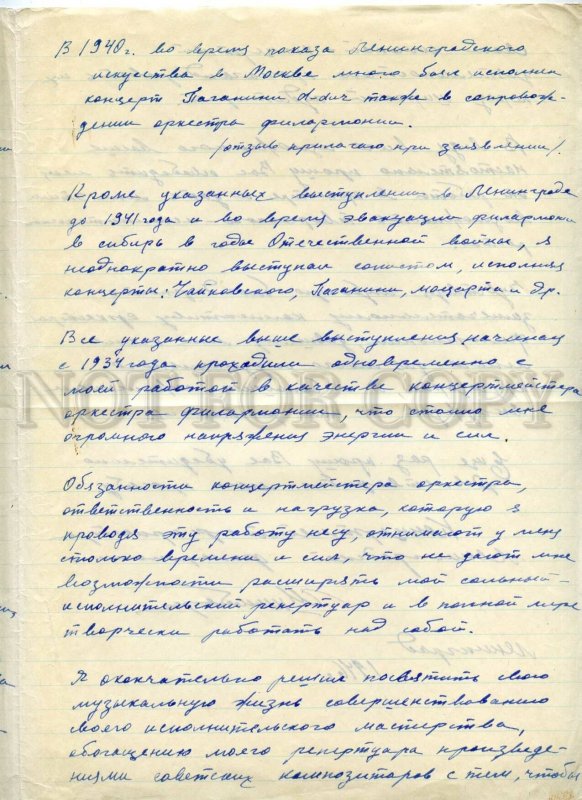 В 1940г. во время показа Ленинградского
искусства в Москве мною был исполнен
концерт Паганини также в сопровож-
дении оркестра филармонии.
/отзыв прилагаю при заявлении/.
Кроме указанных выступлений в Ленинграде
до 1941 года и во время эвакуации филармонии
в сибирь в годы Отечественной войны, я
неоднократно выступал солистом, исполняя
концерты: Чайковского, Паганини, моцарта и др.
Все указанные выше выступления начиная
с 1937 года проходили одновременно с
моей работой в качестве концертмейстера
оркестра филармонии, что стоило мне
огромного напряжения энергии и сил.
Обязанности концертмейстера оркестра,
ответственность и нагрузка, которую я
проводя эту работу несу, отнимают у меня
столько времени и сил, что не дают мне
возможности расширять мой сольный-
исполнительский репертуар и в полной мере
творчески работать над собой.
Я окончательно решил посвятить свою
музыкальную жизнь совершенствованию
своего исполнительского мастерства,
обогащению моего репертуара произведе-
ниями советских композиторов с тем, чтобы
NOT FOR COPY